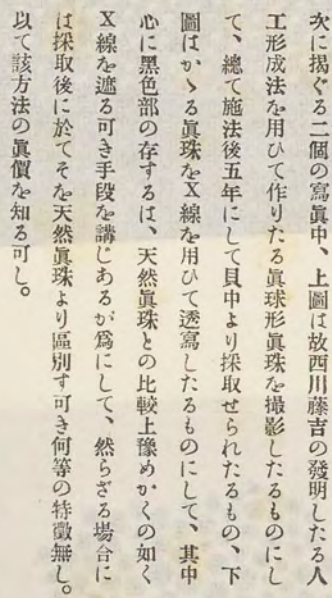 次に掲ぐる二個の寫眞中、上圖は故西川藤吉の發明したる人
工形成法を用ひて作りたる眞球形眞珠を撮影したるものにし
て、總て施法後五年にして貝中より採取せられたるもの、下
圖はかゝる眞珠をX線を用ひて透寫したるものにして、其中
心に黑色部の存するは、天然眞珠との比較上豫めかくの如く
X線を遮る可き手段を講じあるが爲にして、然らざる場合に
は採取後に於てそを天然眞珠より區別す可き何等の特徵無し。
以て該方法の眞價を知る可し。